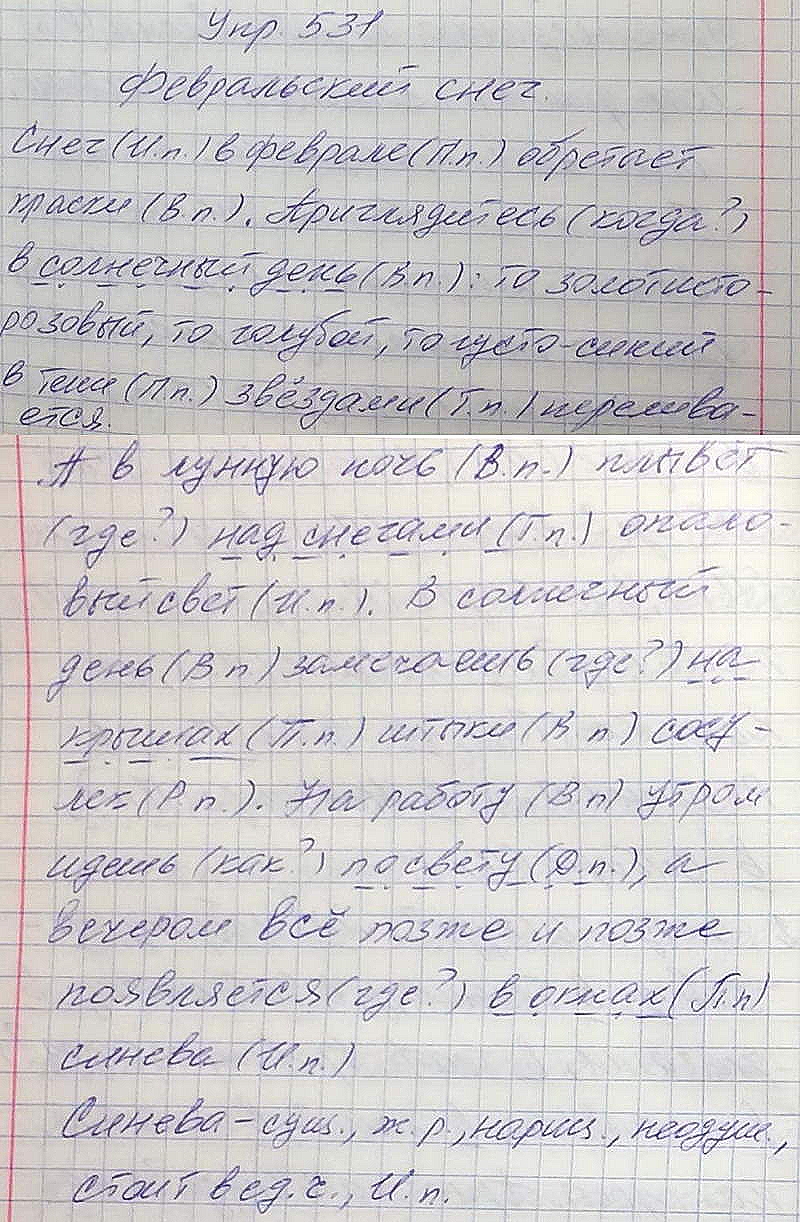 Упр. 531
Февральский снег.
Снег (И.п.) в феврале (П.п.) обретает
краски (В.п.). Приглядитесь (когда?)
в солнечный день (В п.): то золотисто-
розовый, то голубой, то густо-синий
в тени (П п.) звёздами (Т.п.) перелива-
ется.
А в лунную ночь (В.п.) плывёт
(где?) над снегами (Т.п.) опало-
вый свет (И.п.). В солнечный
день (В п) замечаешь (где?) на
крышах (П.п.) штыки (В п) сосу-
лек (Р п.). На работу (В.п) утром
идешь (как?) по свету (Д.п.), а
вечером всё позже и позже
появляется (где?) в окнах (П.п)
синева (И.п.)
Синева - сущ., ж.р., нариц., неодуш.,
стоит в ед.ч., И.п.